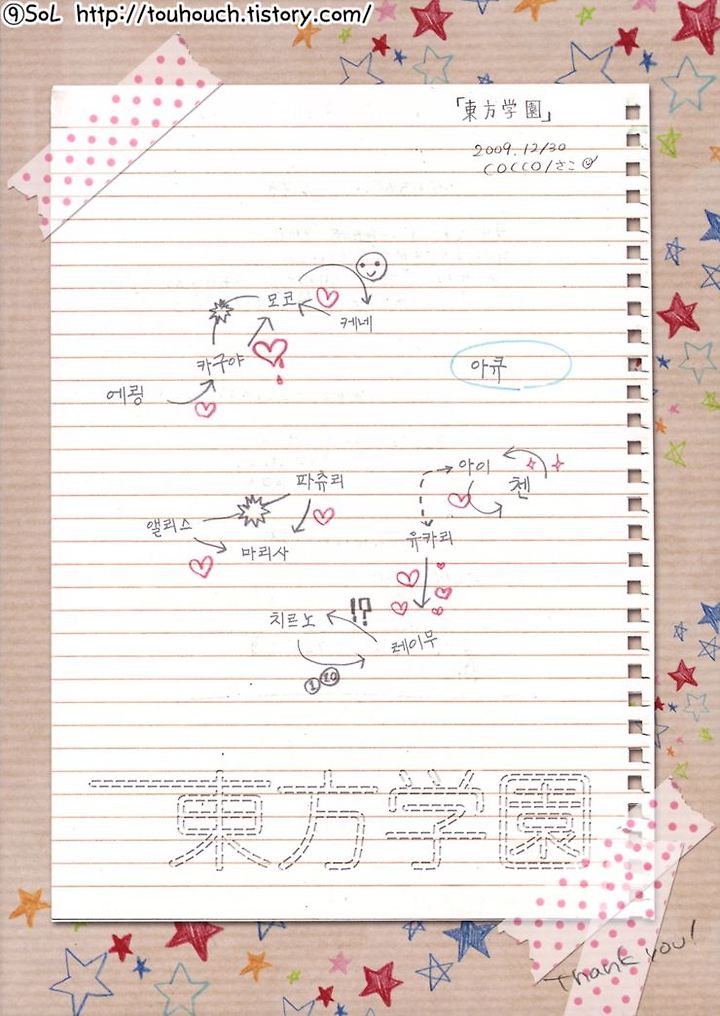 ⑨SoL http://touhouch.tistory.com/
「東方学園」
2009.12/30
COCCO/さこ
모코
케네
카구야
에링
아큐
아이
첸
파츄리
앨리스
마리사
유카리
치르노
!?
레이무
①⑩
東方学園
thank you!